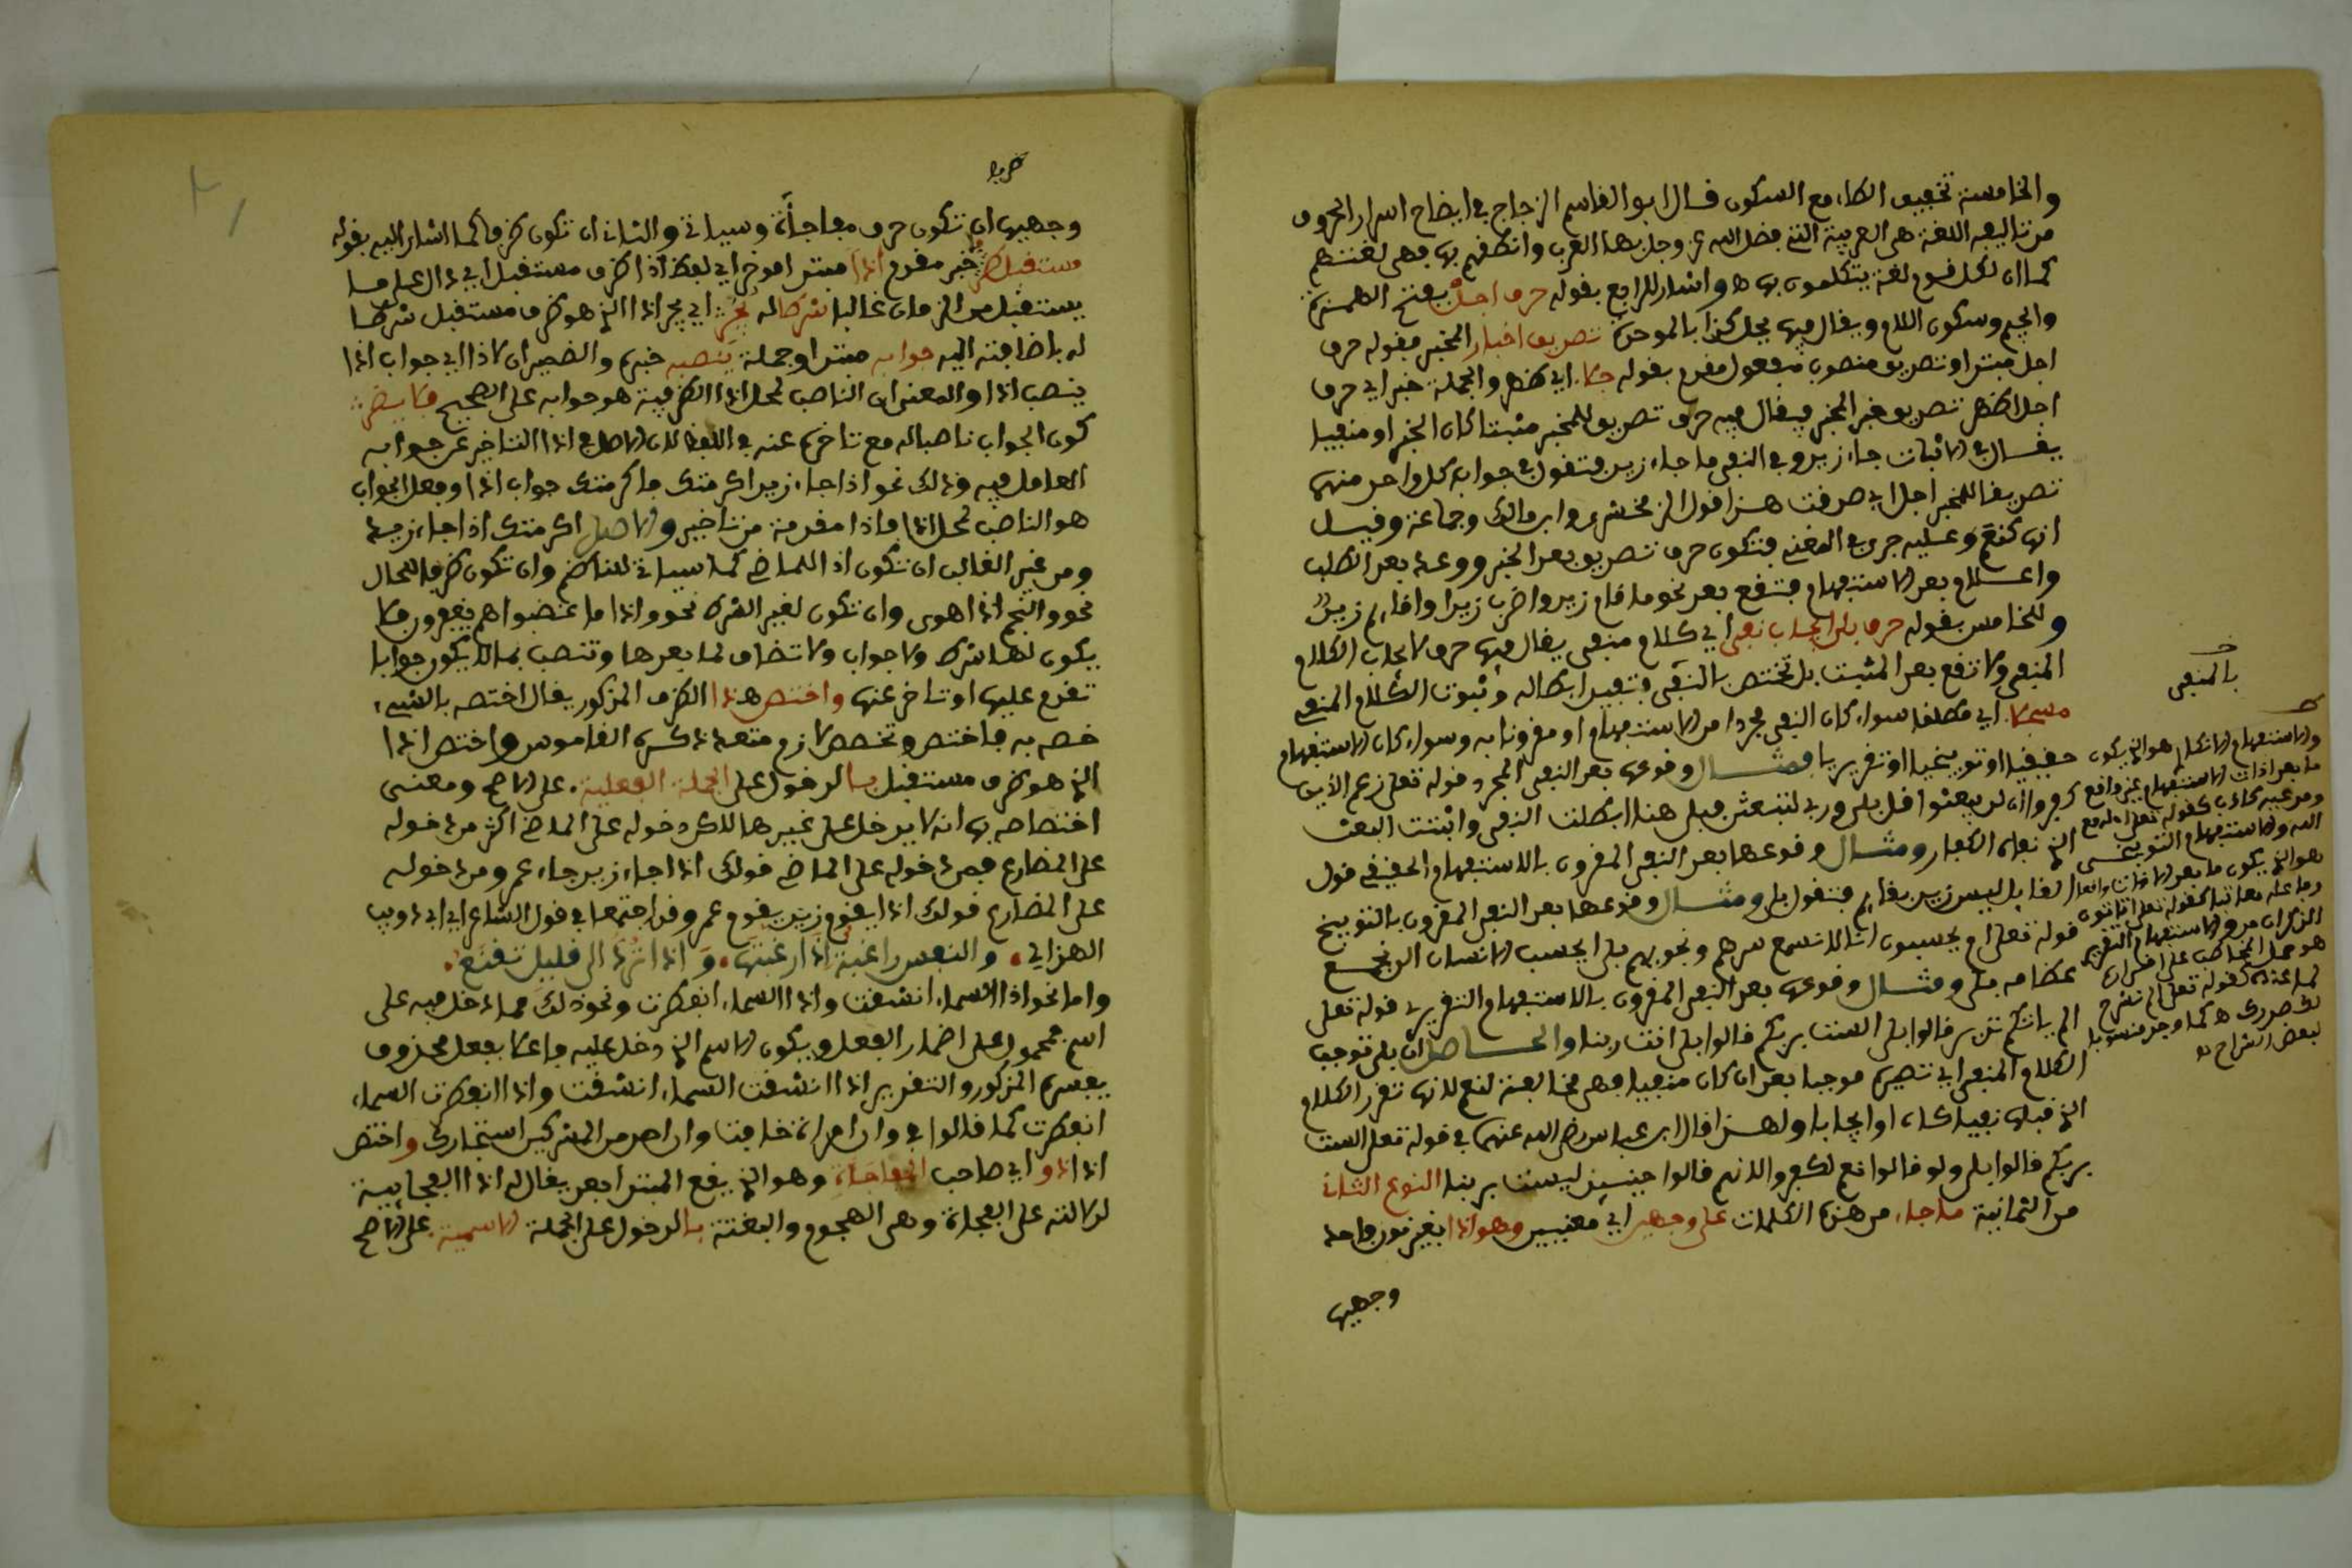 والخامسة تخفيف الطاء مع السكون قال ابو القاسم الزجاج في ايضاح اسرار النحو
من تاليفه اللغة هي العربية التي فضل الله عز وجل بها العرب وانطقهم بها فهي لغتهم
كما ان لكل قوم لغة يتكلمون بها ه واشار للرابع بقوله حرف اجل بفتح الهمزة
والجيم وسكون اللام ويقال فيها بجل كذا بالموحدة تصديق اخبار المخبر فقوله حرف
اجل مبتدا وتصديق منصوب مفعول مقدم بقوله حكا. اي ظهر والجملة خبر اي حرف
اجل اظهر تصديق خبر المخبر فيقال فيه حرف تصديق للمخبر مثبتا كان الخبر او منفيا
يقال في الاثبات جاء زيد وفي النفي ما جاء زيد فتقول في جواب كل واحد منهما
تصديقا للمخبر اجل اي صدقت هذا قول الزمخشري وابن مالك وجماعة وقيل
انها كنعم وعليه جرى في المغني فتكون حرف تصديق بعد الخبر ووعد بعد الطلب
واعلام بعد الاستفهام فتقع بعد نحو ما قام زيد واضرب زيدا واقام زيد
وللخامس بقوله حرف بلى ايجاب نفي اي كلام منفي يقال فيها حرف لايجاب الكلام
المنفي ولا تقع بعد المثبت بل تختص بالنفي وتفيد ابطاله وثبوت الكلام المنفي
مسجلا. اي مطلقا سواء كان النفي مجردا من الاستفهام او مقرونا به وسواء كان الاستفهام
حقيقيا او توبيخيا او تقريريا فمثال وقوعها بعد النفي المجرد قوله تعلى زعم الذين
كفروا ان لن يبعثوا قل بلى وربي لتبعثن فبلى هنا ابطلت النفي واثبتت البعث
الذي نفاه الكفار ومثال وقوعها بعد النفي المقرون بالاستفهام الحقيقي قول
القايل اليس زيد بقايم فتقول بلى ومثال وقوعها بعد النفي المقرون بالتوبيخ
قوله تعلى ام يحسبون انا لا نسمع سرهم ونجويهم بلى ايحسب الانسان الن نجمع
عظامه بلى ومثال وقوعها بعد النفي المقرون بالاستفهام التقريري قوله تعلى
الم ياتكم نذير قالوا بلى الست بربكم قالوا بلى انت ربنا والحاصل ان بلى توجب
الكلام المنفي اي تصيره موجبا بعد ان كان منفيا فهي مخالفة لنعم لانها تقرر الكلام
الذي قبلها نفيا كان او ايجابا ولهذا قال ابن عباس رضي الله عنهما في قوله تعلى الست
بربكم قالوا بلى ولو قالوا نعم لكفروا لانهم قالوا حينيذ ليست بربنا النوع الثاني
من الثمانية ما جاء من هذه الكلمات على وجهين اي معنيين وهو اذا بغير نون فاحد
وجهيها
بالمنفي
والاستفهام الانكاري هو الذي يكون
ما بعد اداة الاستفهام غير واقع
ومدعيه كاذب كقوله تعلى اءله مع
الله والاستفهام التوبيخي
هو الذي يكون ما بعد الاداة واقعا
وفاعله معاتبا كقوله تعلى اتاتون
الذكران من والاستفهام التقريري
هو حمل المخاطب على اقراره
بما عنده كقوله تعلى الم نشرح
لك صدرك ه كما وجد منسوبا
لبعض الشراح
وجهيها ان تكون حرف مفاجأة وسياتي والثاني ان تكون ظرفا كما اشار اليه بقوله
مستقبل ظرف خبر مقدم اذا مبتدا موخر اي لفظ اذا ظرف مستقبل اي دال على ما
يستقبل من الزمان غالبا شرطا له يجر اي يجر اذا الذي هو ظرف مستقبل شرطا
له باضافته اليه جوابه مبتدا وجملة ينصبه خبره والضمير لاذا اي جواب اذا
ينصب اذا والمعنى ان الناصب لمحل اذا الظرفية هو جوابه على الصحيح فلا يضر
كون الجواب ناصبا له مع تاخره عنه في اللفظ لان الاصل في اذا التاخير عن جوابه
العامل فيه وذلك نحو اذا جاء زيد اكرمتك فاكرمتك جواب اذا وفعل الجواب
هو الناصب لمحل اذا فاذا مقدمة من تاخير والاصل اكرمتك اذا جاء زيد
ومن غير الغالب ان تكون اذا للماضي كما سياتي للناظم وان تكون ظرفا للحال
نحو والنجم اذا هوى وان تكون لغير الشرط نحو واذا ما غضبوا هم يغفرون فلا
يكون لها شرط ولا جواب ولا تضاف لما بعدها وتنصب بما لا يكون جوابا
تقدم عليها او تاخر عنها واختص هذا الظرف المذكور يقال اختصه بالشيء
خصه به فاختص وتخصص لازم متعد ذكره القاموس واختص اذا
الذي هو ظرف مستقبل بالدخول على الجملة الفعلية. على الاصح ومعنى
اختصاصه بها انه لا يدخل على غيرها لكن دخوله على الماضي اكثر من دخوله
على المضارع فمن دخوله على الماضي قولك اذا جاء زيد جاء عمرو ومن دخوله
على المضارع قولك اذا يقوم زيد يقوم عمرو وقد اجتمعا في قول الشاعر ابي ذويب
الهذلي. والنفس راغبة اذا رغبتها. واذا ترد الى قليل تقنع.
واما نحو اذا السماء انشقت واذا السماء انفطرت ونحو ذلك مما دخل فيه على
اسم فمحمول على اضمار الفعل ويكون الاسم الذي دخل عليه فاعلا بفعل محذوف
يفسره المذكور والتقدير اذا انشقت السماء انشقت واذا انفطرت السماء
انفطرت كما قالوا في وان امراة خافت وان احد من المشركين استجارك واختص
اذا ذو اي صاحب المفاجاة وهو الذي يقع المبتدا بعده يقال له اذا الفجايية
لدلالته على الفجاة وهي الهجوم والبغتة بالدخول على الجملة الاسمية على الاصح